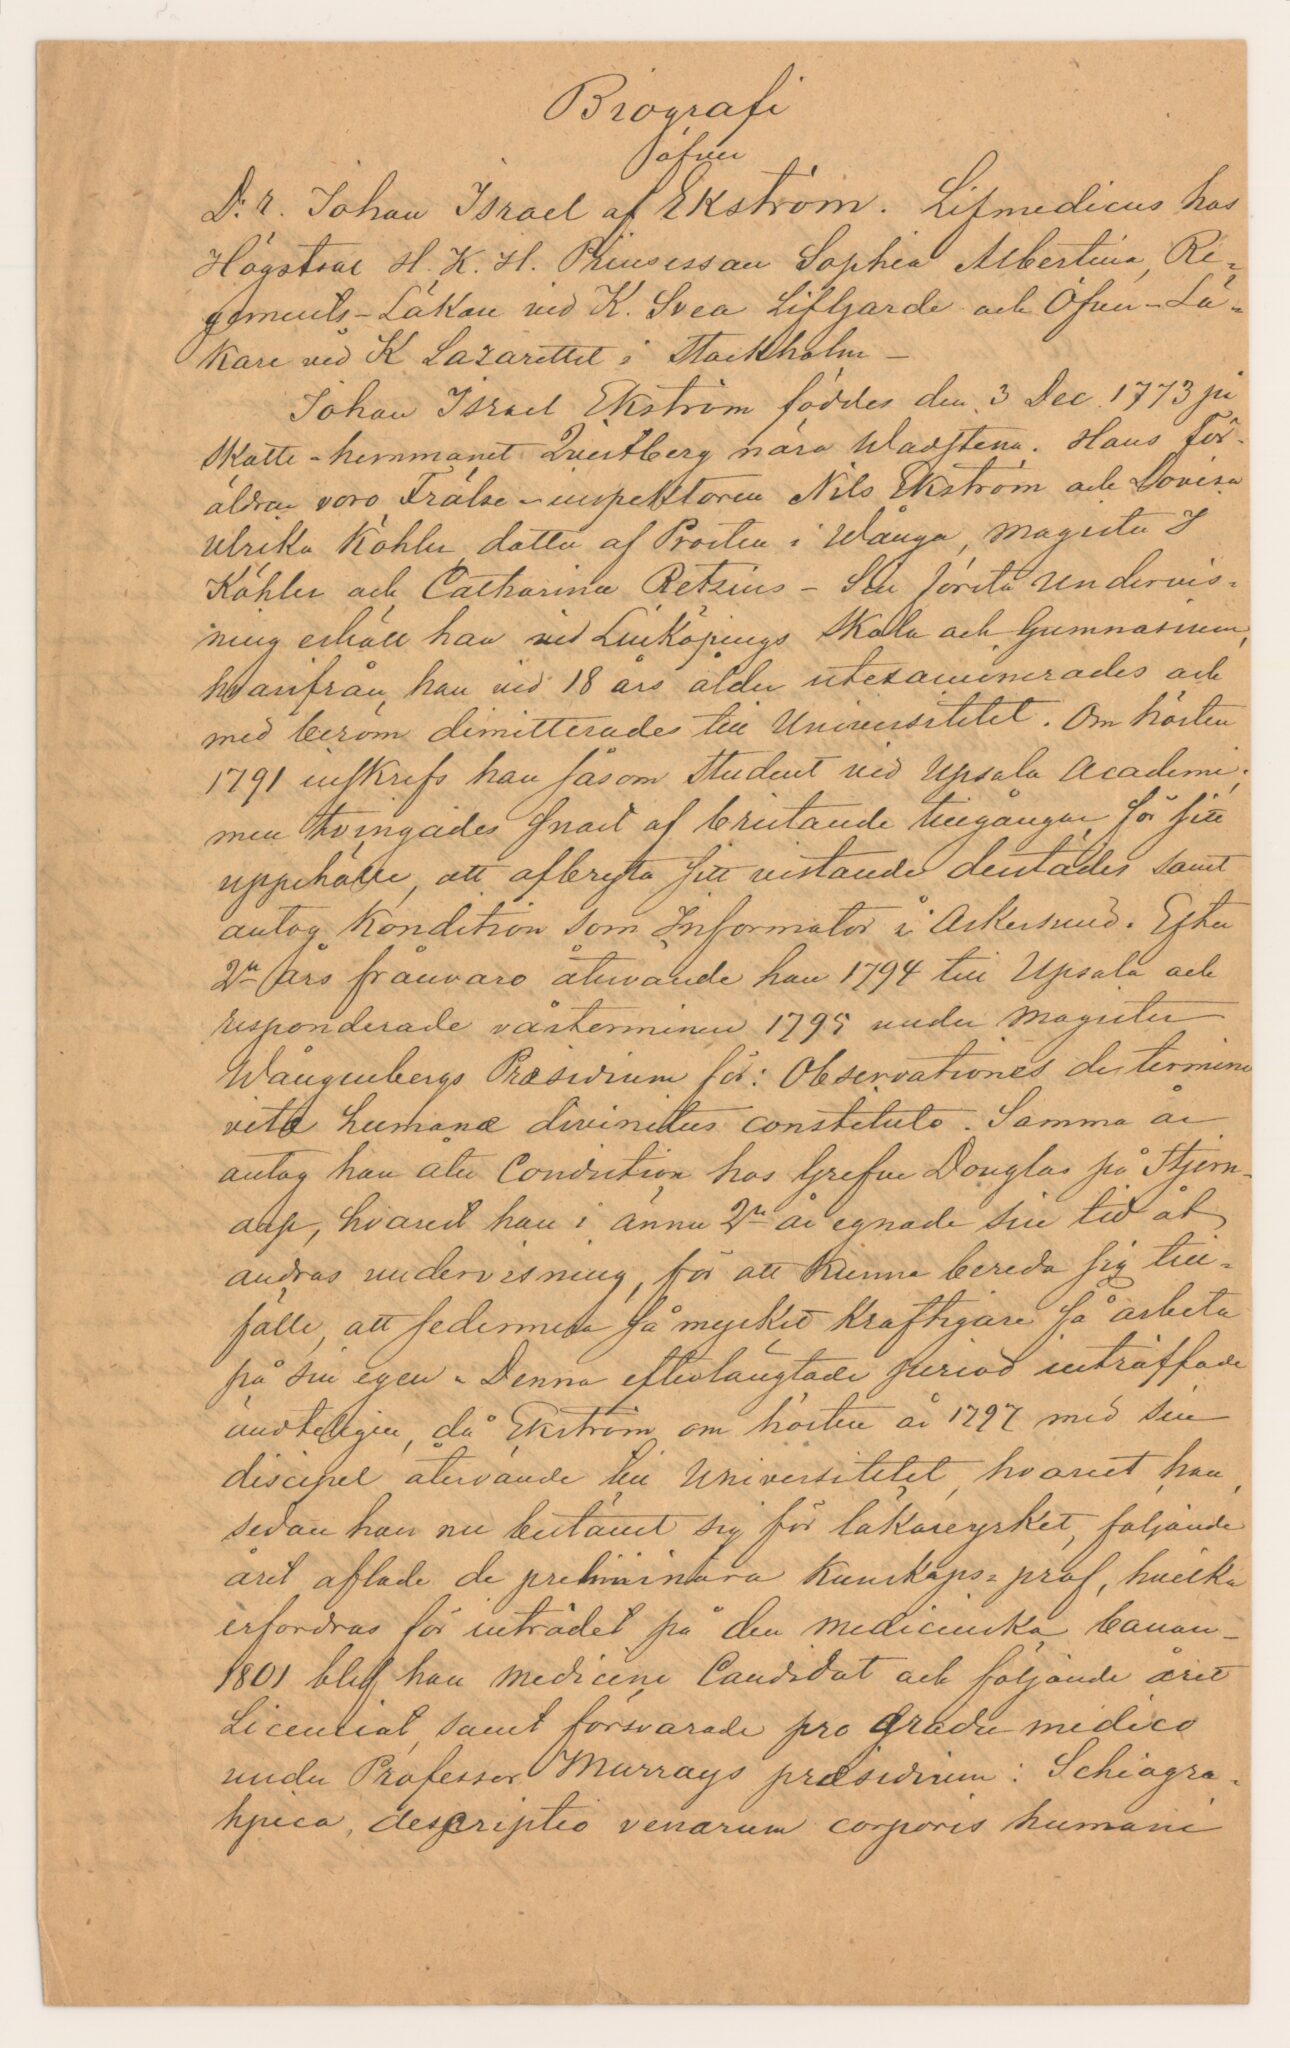 Biografi
öfver
D:r. Johan Israel af Ekström. Lifmedicus hos
Högstsal. H. K. H. Prinsessan Sophia Albertina, Re-
gements-Läkare vid K. Svea Lifgarde och Öfver-Lä-
kare vid K Lazarettet i Stockholm -
Johan Israel Ekström föddes den 3 Dec. 1773 på
Skatte-hemmanet Qvistberg nära Wadstena. Hans För-
äldrar voro Frälse-inspektoren Nils Ekström och Lovisa
Ulrika Köhler dotter af Prosten i Wånga, Magister J
Köhler och Catharina Retzius - Sin första undervis-
ning erhöll han vid Linköpings Skola och Gymnasium,
hvarifrån han vid 18 års ålder utexaminerades och
med beröm dimitterades till Universitetet. Om hösten
1791 inskrefs han såsom Student vid Upsala Academi;
men tvingades snart af bristande tillgångar för sitt
uppehälle, att afbryta sitt vistande derstädes samt
antog Kondition som Informator i Askersund. Efter
2ne års frånvaro återvände han 1794 till Upsala och
responderade vårterminen 1795 under Magister
Wångenbergs Præsidium för: Observationes de termino
vitæ humanæ divinitus constituto. Samma år
antog han åter Condition hos Grefve Douglas på Stjern-
arp, hvarest han i ännu 2ne år egnade sin tid åt
andras undervisning, för att kunna bereda sig till-
fälle, att sedermera så mycket kraftigare få arbeta
på sin egen. Denna efterlängtade period inträffade
ändteligen, då Ekström om hösten år 1797 med sin
discipel återvände till Universitetet, hvarest han,
sedan han nu bestämt sig för läkareyrket, följande
året aflade de preliminära Kunskaps-prof, hvilka
erfordras för inträdet på den medicinska banan -
1801 blef han Medicine Candidat och följande året
Licentiat, samt försvarade pro Gradu medico
under Professor Murrays præsidium: Schiagra-
hpica, descriptio venarum corporis humani